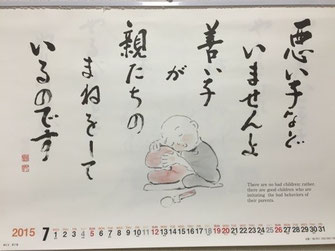 悪い子など
いませんよ
善い子
が
親たちの
まねをして
いるのです
There are no bad children rather,
there are good children who are
imitating the bad behaviors of
their parents.
2015 7 1 2 3 4 5 6 7 8 9 10 11 12 13 14 15 16 17 18 19 20 21 22 23 24 25 26 27 28 29 30 31